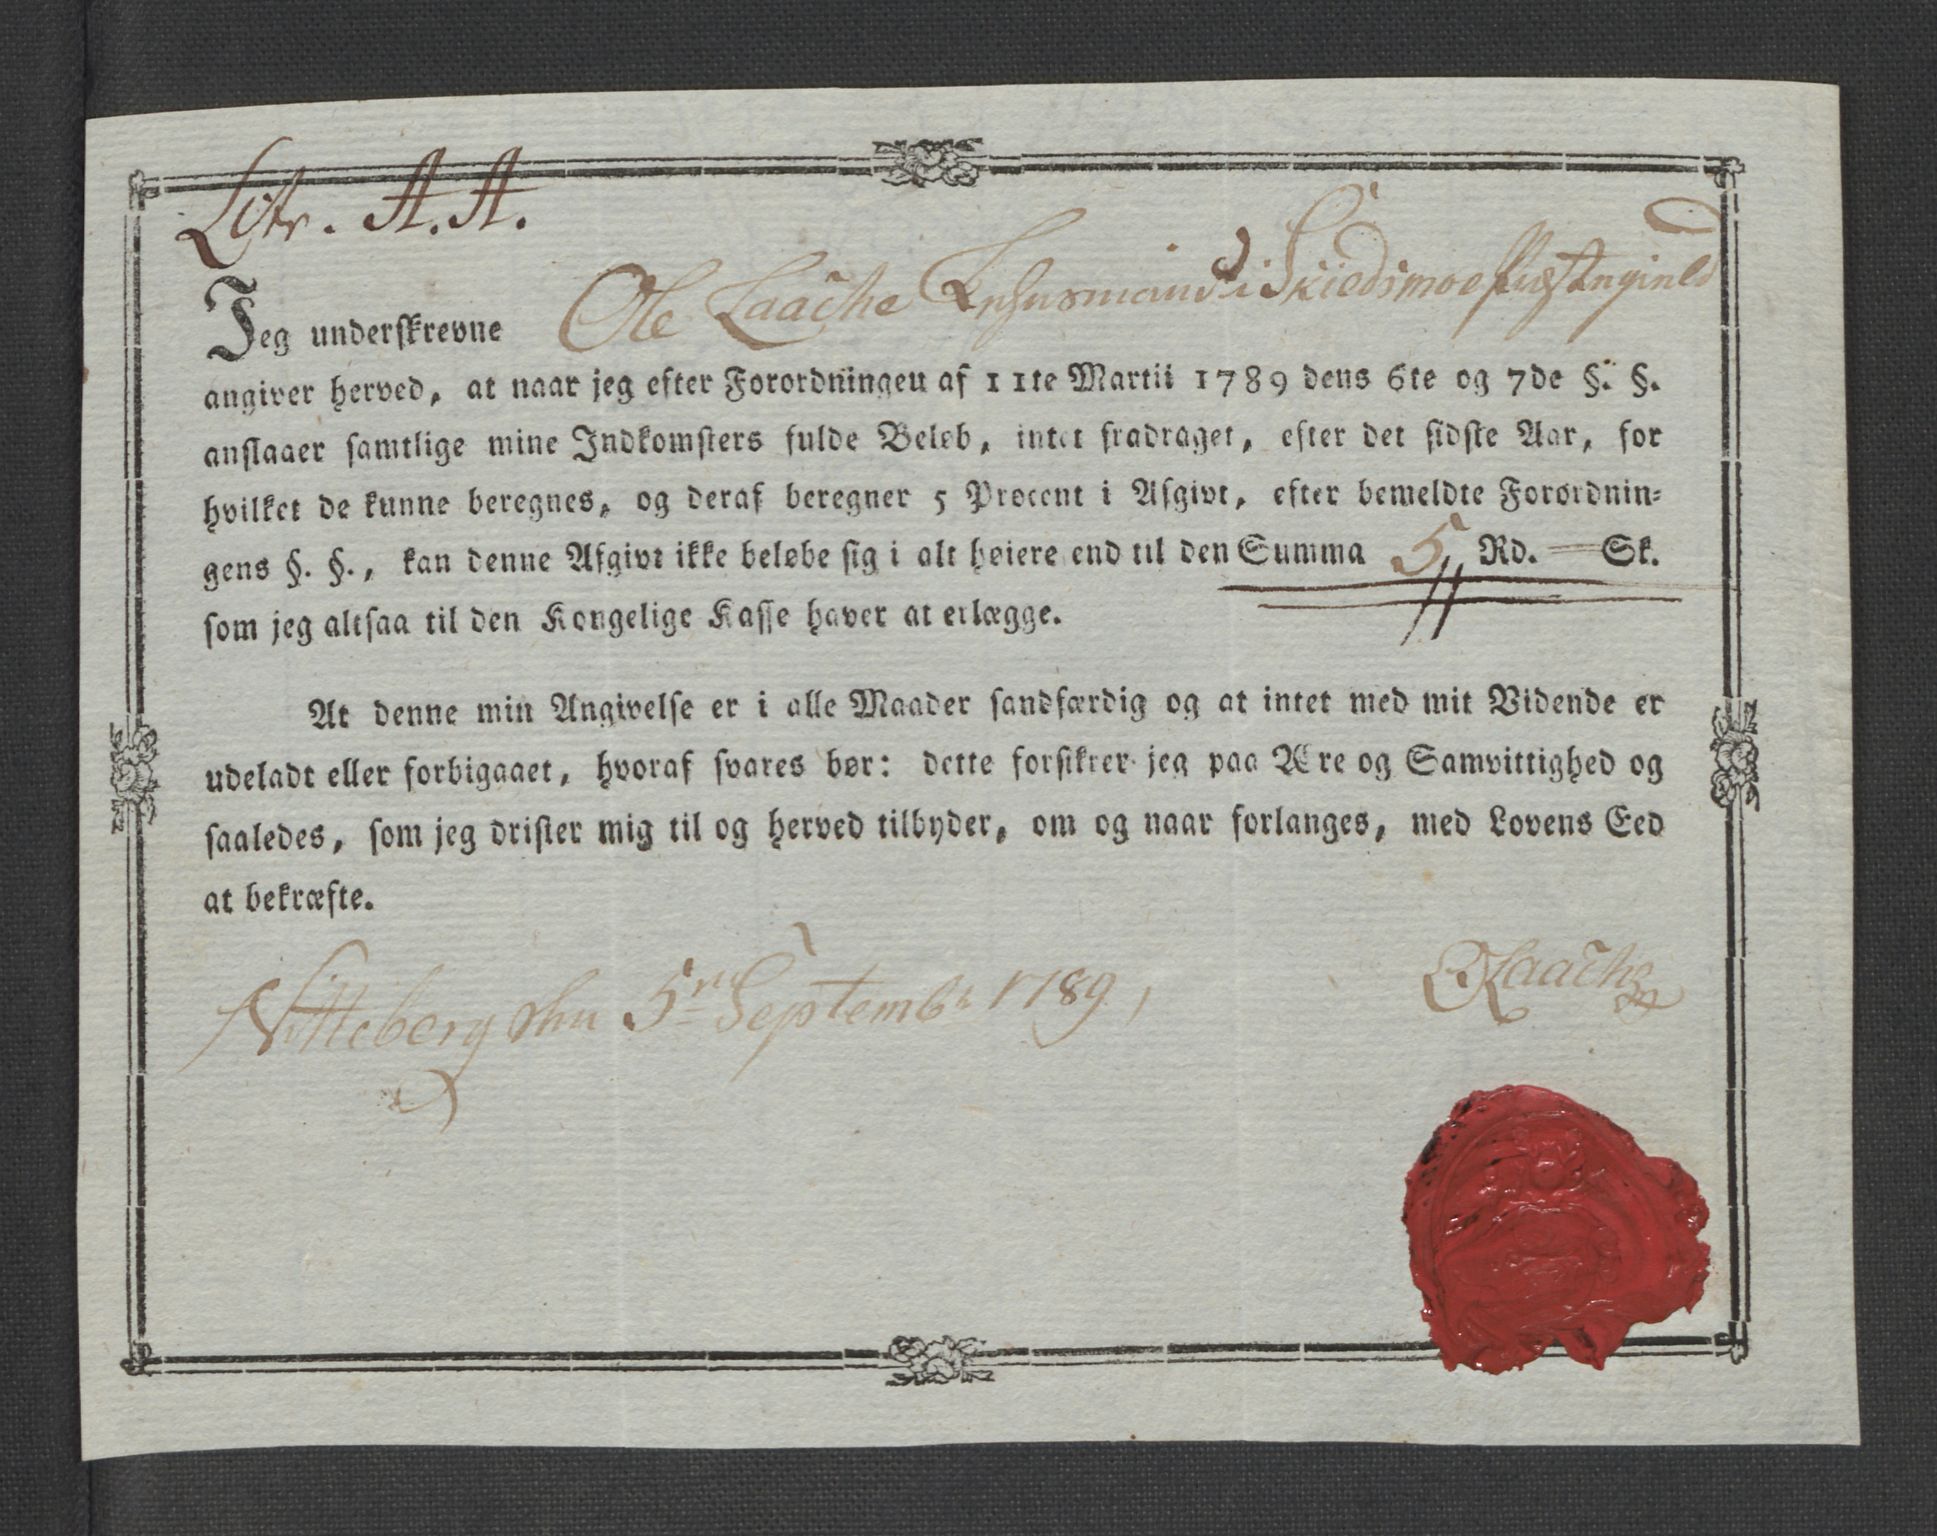 Litr. A. A.
Jeg underskrevne Ole Laache Lehnsmand i Skiedsmoe Præstegield
angiver herved, at naar jeg efter Forordningen af 11te Martii 1789 dens 6te og 7de §. §.
anslaaer samtlige mine Indkomsters fulde Beløb, intet fradraget, efter det sidste Aar, for
hvilket de kunne beregnes, og deraf beregner 5 Procent i Afgivt, efter bemeldte Forordnin-
gens §. §., kan denne Afgivt ikke beløbe sig i alt høiere end til den Summa 5 Rd. — Sk.
som jeg altsaa til den Kongelige Kasse haver at erlægge.
At denne min Angivelse er i alle Maader sandfærdig og at intet med mit Vidende er
udeladt eller forbigaaet, hvoraf svares bør: dette forsikrer jeg paa Ære og Samvittighed og
saaledes, som jeg drister mig til og herved tilbyder, om og naar forlanges, med Lovens Eed
at bekræfte.
Nitteberg den 5te Septembr 1789,
OLaache